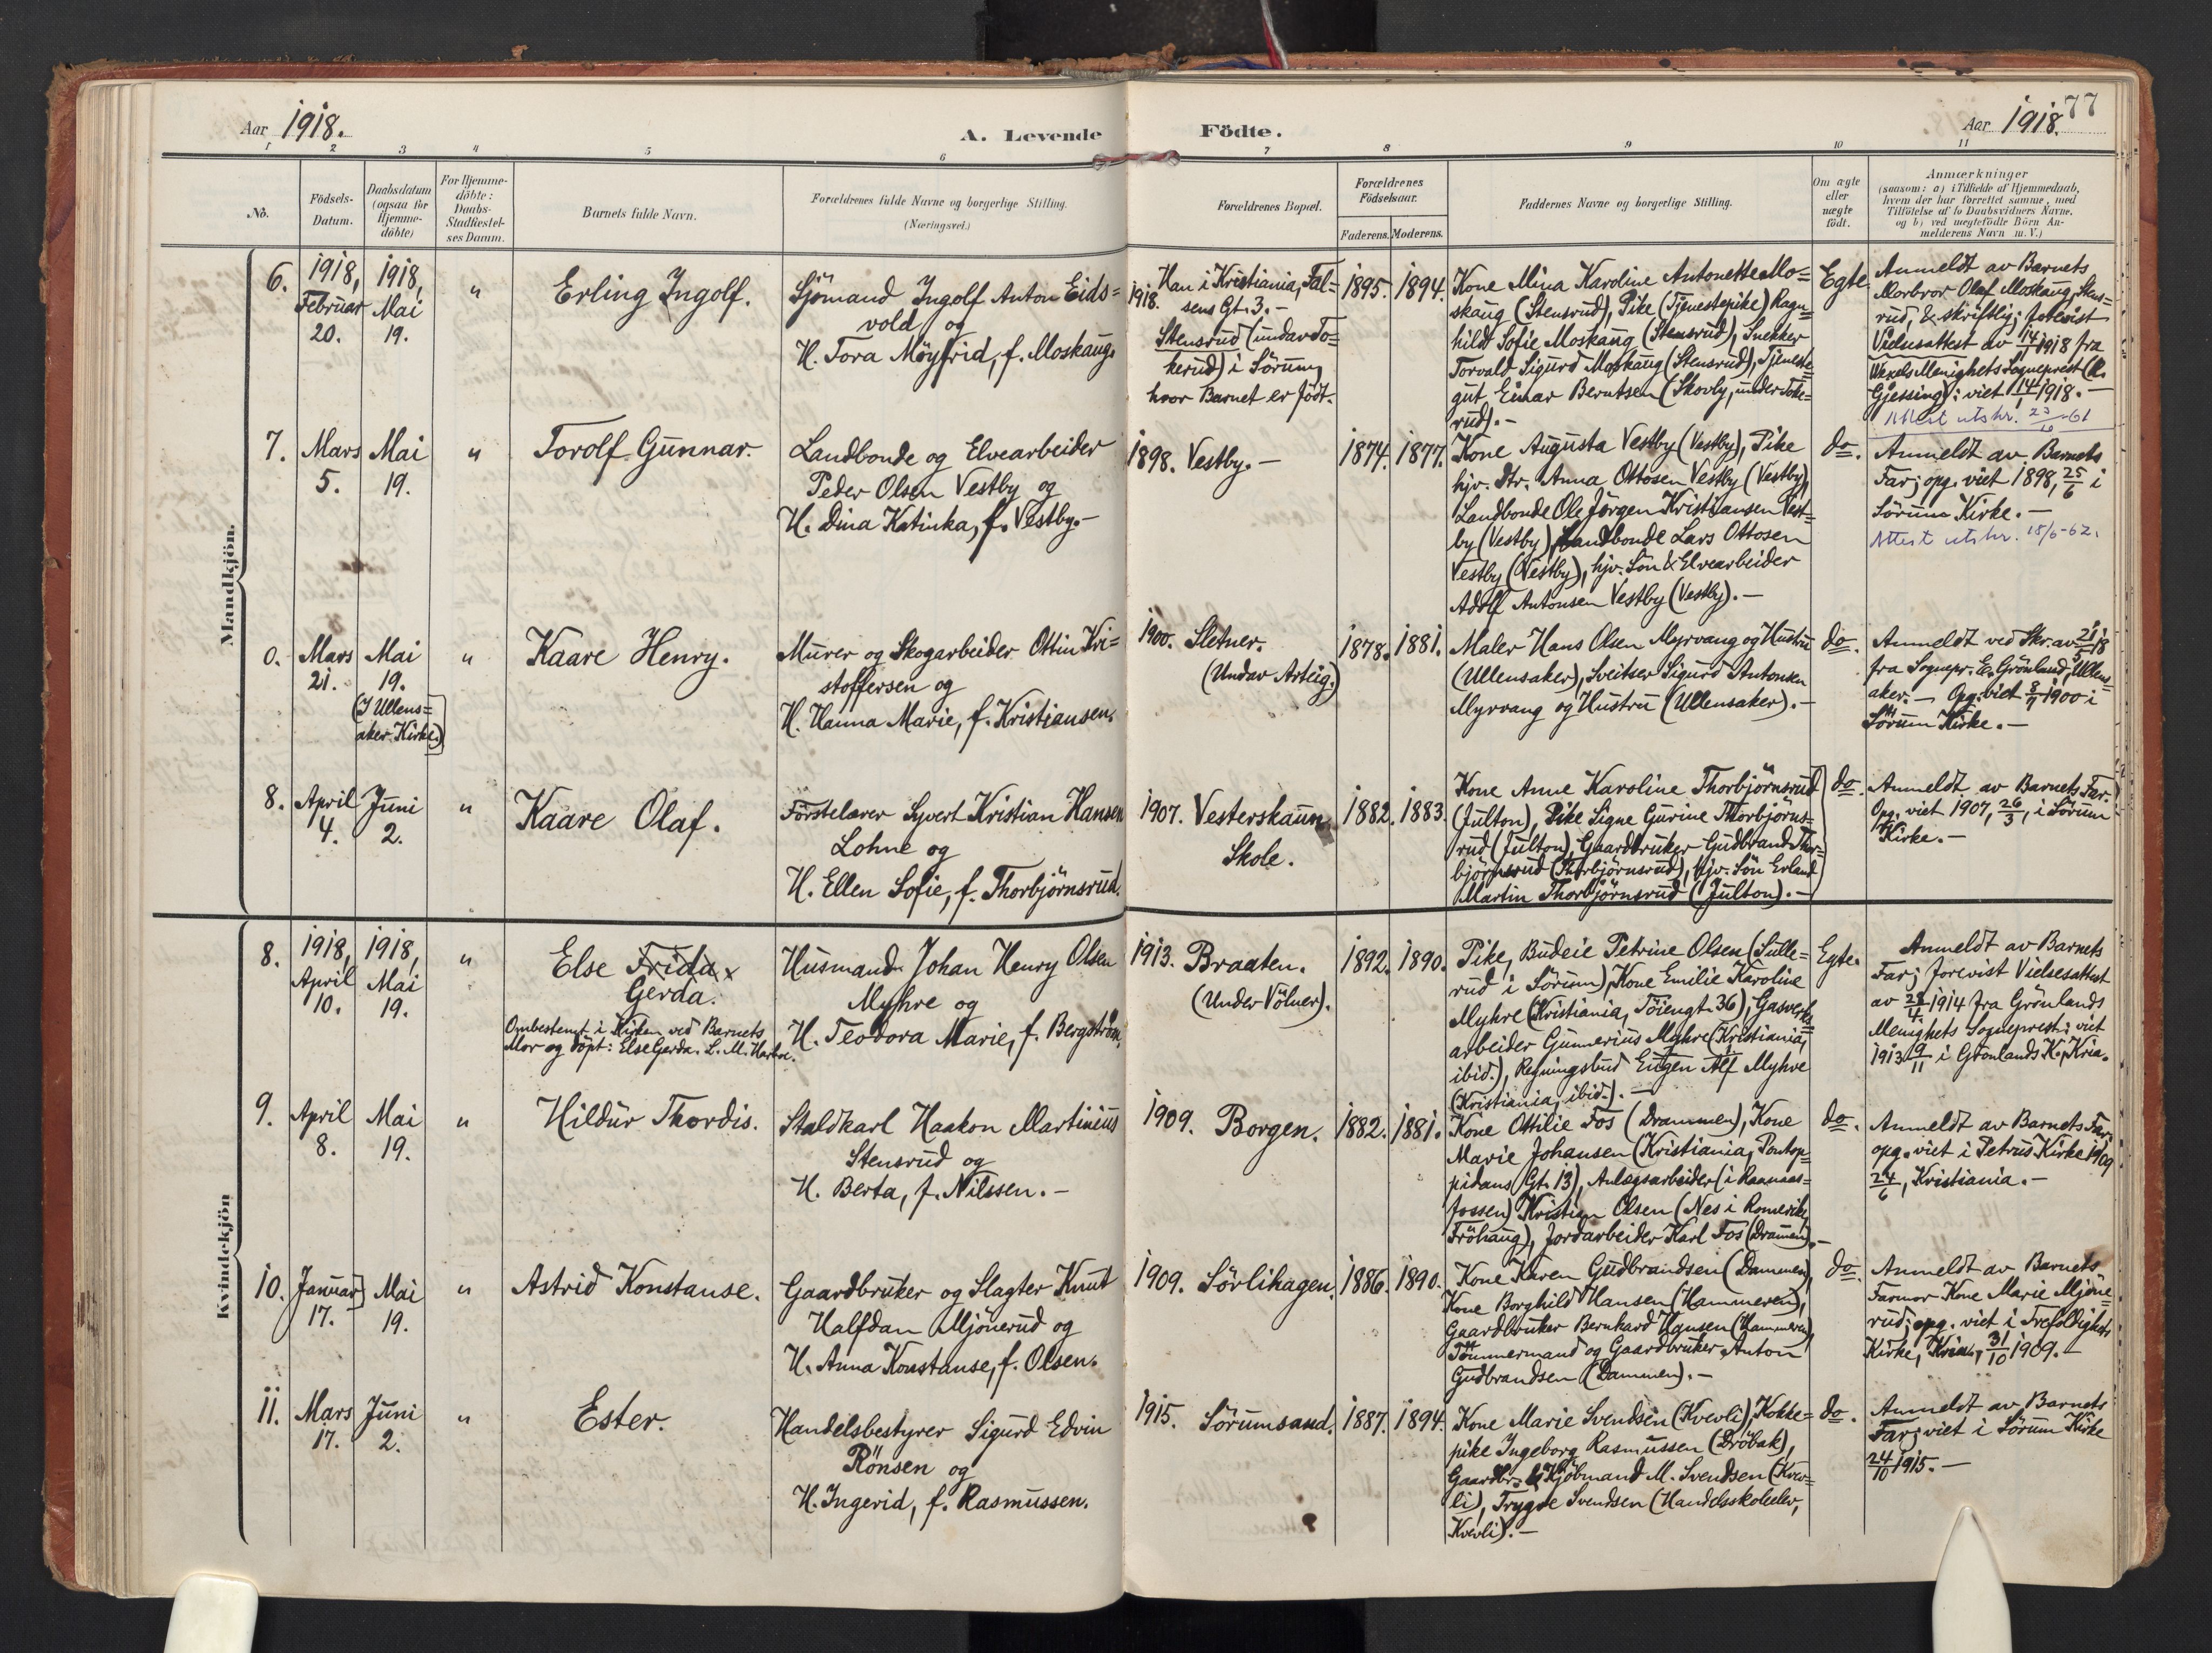 Aar 1918.
A. Levende
Födte.
77
Aar 1918.
1
2
3
4
5
6
7
8
9
10
11
No.
Födsels-
Datum.
Daabsdatum
(ogsaa for
Hjemme-
döbte)
For Hjemme-
döbte:
Daabs-
Stadfæstel-
ses Datum.
Barnets fulde Navn.
Forældrenes fulde Navne og borgerlige Stilling.
(Næringsvei.)
Forældrenes Bopæl.
Forældrenes
Födselsaar.
Faderens.
Moderens.
Faddernes Navne og borgerlige Stilling.
Om ægte
eller
uægte
födt.
Anmærkninger
(saasom: a) i Tilfælde af Hjemmedaab,
hvem der har forrettet samme, med
Tilföielse af to Daabsvidners Navne,
og b) ved uægtefödte Börn An-
melderens Navn m. V.)
Mandkjön.
6.
1918,
Februar
20.
1918,
Mai
19.
"
Erling Ingolf.
Sjömand Ingolf Anton Eids=
vold og
H. Tora Möyfrid, f. Moskaug.
1918.
Han i Kristiania, Fal=
sens Gt. 3. –
Stensrud (undav To=
kerud) i Sörum,
hvor Barnet er födt.
1895.
1894.
Kone Mina Karoline Antonette Mo=
skaug (Stensrud), Pike (Tjenestepike) Ragn=
hild Sofie Moskaug (Stensrud), Snekker
Torvald Sigurd Moskaug (Stensrud), Tjeneste=
gut Einar Berntsen (Skovly, under Toke=
rud). –
Egte.
Anmeldt av Barnets
Morbror Olaf Moskaug, Stens=
rud, & skriftlig; forevist
Vielsesattest av 14/1 1918 fra
Wexels Menighets Sogneprest (R.
Gjessing): viet 14/1 1918. –
Attest utskr. 23/10-61
7.
Mars
5.
Mai
19.
"
Torolf Gunnar.
Landbonde og Elvearbeider
Peder Olsen Vestby og
H. Dina Katinka, f. Vestby. –
1898. Vestby. –
1874.
1877.
Kone Augusta Vestby (Vestby), Pike
hjv. Dtr. Anna Ottosen Vestby (Vestby),
Landbonde Ole Jörgen Kristiansen Vest=
by (Vestby), Landbonde Lars Ottosen
Vestby (Vestby), hjv. Sön & Elvearbeider
Adolf Antonsen Vestby (Vestby). –
do.
Anmeldt av Barnets
Far; opg. viet 1898, 25/6 i
Sörum Kirke. –
Attest utskr. 18/6-62.
0.
Mars
21.
Mai
19.
(I Ullens=
aker Kirke.)
"
Kaare Henry.
Murer og Skogarbeider Ottin Kri=
stoffersen og
H. Hanna Marie, f. Kristiansen.
1900. Sletner.
(Undav Arteig.)
1878.
1881.
Maler Hans Olsen Myrvang og Hustru
(Ullensaker), Sveitser Sigurd Antonsen
Myrvang og Hustru (Ullensaker). –
do.
Anmeldt ved Skr. av 21/5 18
fra Sognepr. E. Grönland, Ullens=
aker. – Opg. viet 8/4 1900 i
Sörum Kirke. –
8.
April
4.
Juni
2.
"
Kaare Olaf.
Förstelærer Syvert Kristian Hansen
Lohne og
H. Ellen Sofie, f. Thorbjörnsrud.
1907. Vesterskaun
Skole.
1882.
1883.
Kone Anne Karoline Thorbjörnsrud
(Julton), Pike Signe Gurine Thorbjörns=
rud (Julton), Gaardbruker Gudbrand Thor=
björnsrud (Thorbjörnsrud), hjv. Sön Erland
Martin Thorbjörnsrud (Julton). –
do.
Anmeldt av Barnets Far.
Opg. viet 1907, 26/3, i Sörum
Kirke. –
Kvindekjön
8.
1918,
April
10.
1918,
Mai
19.
"
Else Frida x
Gerda.
Ombestemt i Kirken ved Barnets
Mor og döpt: Else Gerda.
Husmand Johan Henry Olsen
Myhre og
H. Teodora Marie, f. Bergström.
1913. Braaten.
(Under Völner).
1892.
1890.
Pike, Budeie Petrine Olsen (Sulle=
rud i Sörum), Kone Emilie Karoline
Myhre (Kristiania, Töiengt. 36), Gasverks=
arbeider Gunnerius Myhre (Kristiania,
ibid.), Regningsbud Eugen Alf Myhre
(Kristiania, ibid.). –
Egte.
Anmeldt av Barnets
Far; forevist Vielsesattest
av 28/4 1914 fra Grönlands
Menighets Sogneprest: viet
1913 9/11 i Grönlands K., Kria.
9.
April
8.
Mai
19.
"
Hildur Thordis.
Staldkarl Haakon Martinius
Stensrud og
H. Berta, f. Nilssen. –
1909. Borgen.
1882.
1881.
Kone Ottilie Fos (Drammen), Kone
Marie Johansen (Kristiania, Pontop=
pidans Gt. 13), Anlægsarbeider (i Raanaas=
fossen) Kristian Olsen (Nes i Romerike,
Fröhaug), Jordarbeider Karl Fos (Drammen). –
do.
Anmeldt av Barnets Far;
opg. viet i Petrus Kirke 1909
24/6, Kristiania. –
10.
Januar
17.
Mai
19.
"
Astrid Konstanse.
Gaardbruker og Slagter Knut
Halfdan Mjönerud og
H. Anna Konstanse, f. Olsen.
1909. Sörlihagen.
1886.
1890.
Kone Karen Gudbrandsen (Dammen),
Kone Borghild Hansen (Hammeren),
Gaardbruker Bernhard Hansen (Hammeren),
Tömmermand og Gaardbruker Anton
Gudbrandsen (Dammen). –
do.
Anmeldt av Barnets
Farmor Kone Marie Mjöne=
rud; opg. viet i Trefoldigheds
Kirke, Kria., 31/10 1909. –
11.
Mars
17.
Juni
2.
"
Ester.
Handelsbestyrer Sigurd Edvin
Rönsen og
H. Ingerid, f. Rasmussen.
1915. Sörumsand.
1887.
1894.
Kone Marie Svendsen (Kvevli), Kokke=
pike Ingeborg Rasmussen (Dröbak),
Gaardbr. & Kjöbmand M. Svendsen (Kvev=
li), Trygve Svendsen (Handelsskoleelev,
Kvevli). –
do.
Anmeldt av Barnets
Far; viet i Sörum Kirke
24/10 1915. –